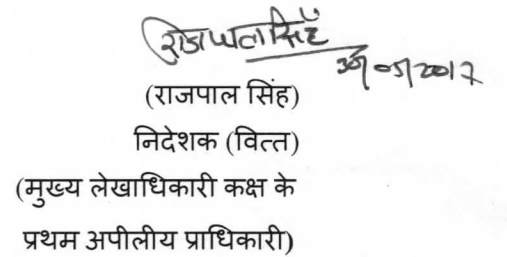 राजपाल सिंह
30/05/2017
(राजपाल सिंह)
निदेशक (वित्त)
(मुख्य लेखाधिकारी कक्ष के
प्रथम अपीलीय प्राधिकारी)